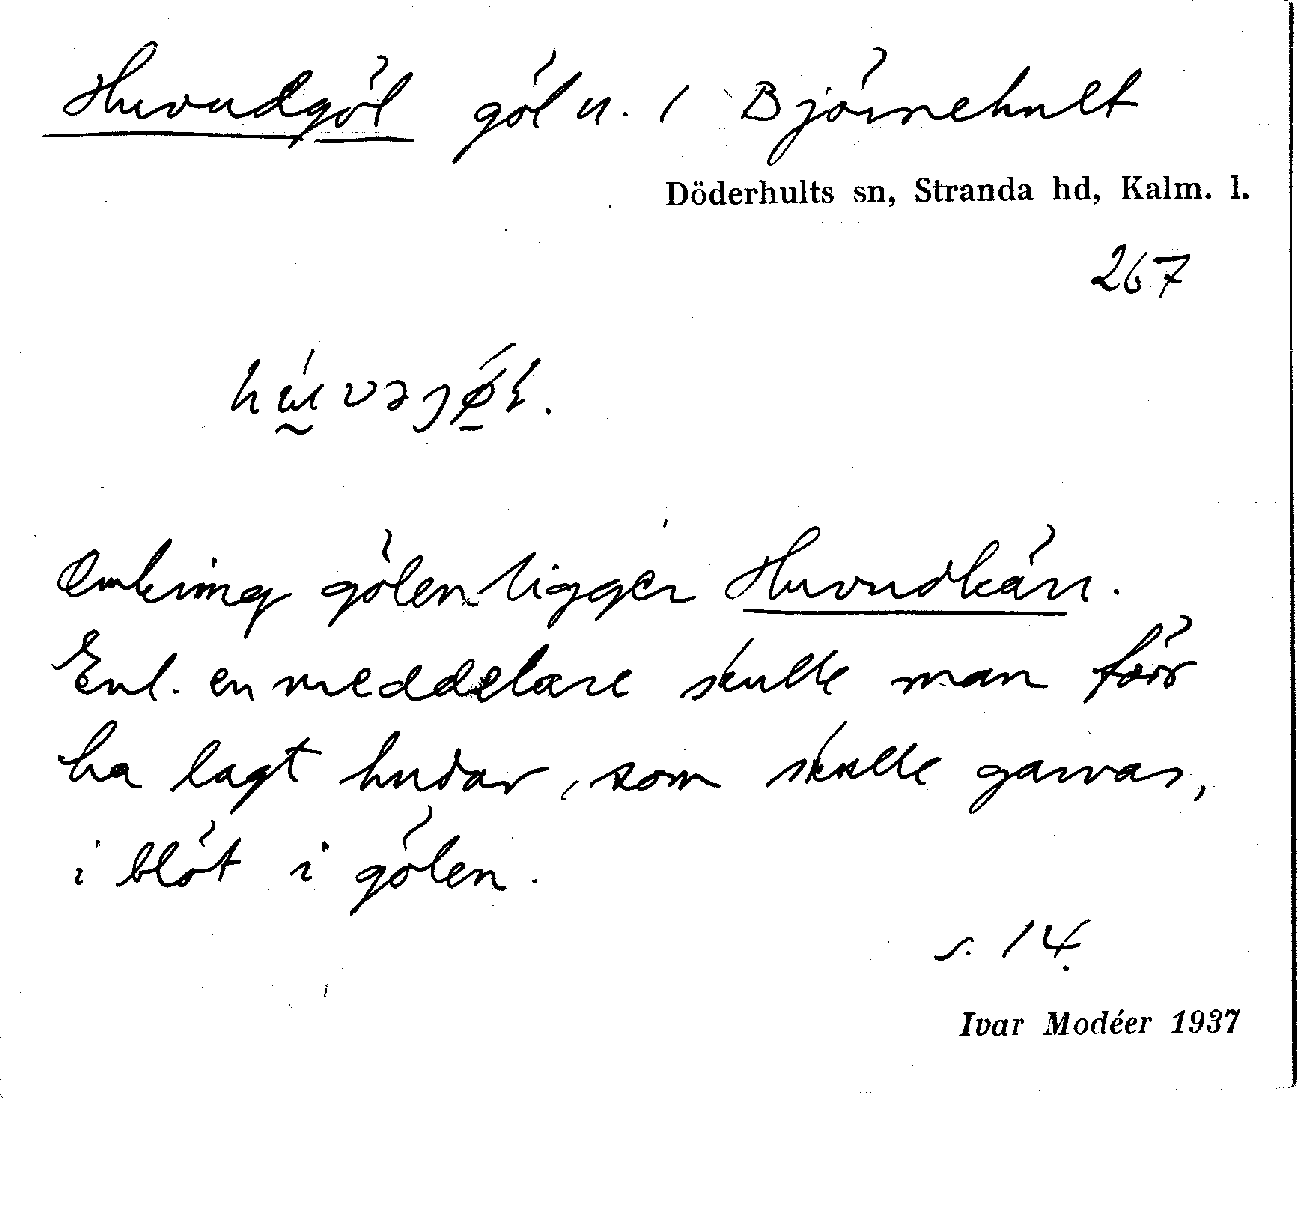 Huvudgöl göl n. / Björnehult
Döderhults sn, Stranda hd, Kalm. l.
267
Omkring gölen ligger Huvudkärr.
Enl. en meddelare skulle man förr
ha lagt hudar, som skulle garvas,
i blöt i gölen.
s. 14.
Ivar Modéer 1937